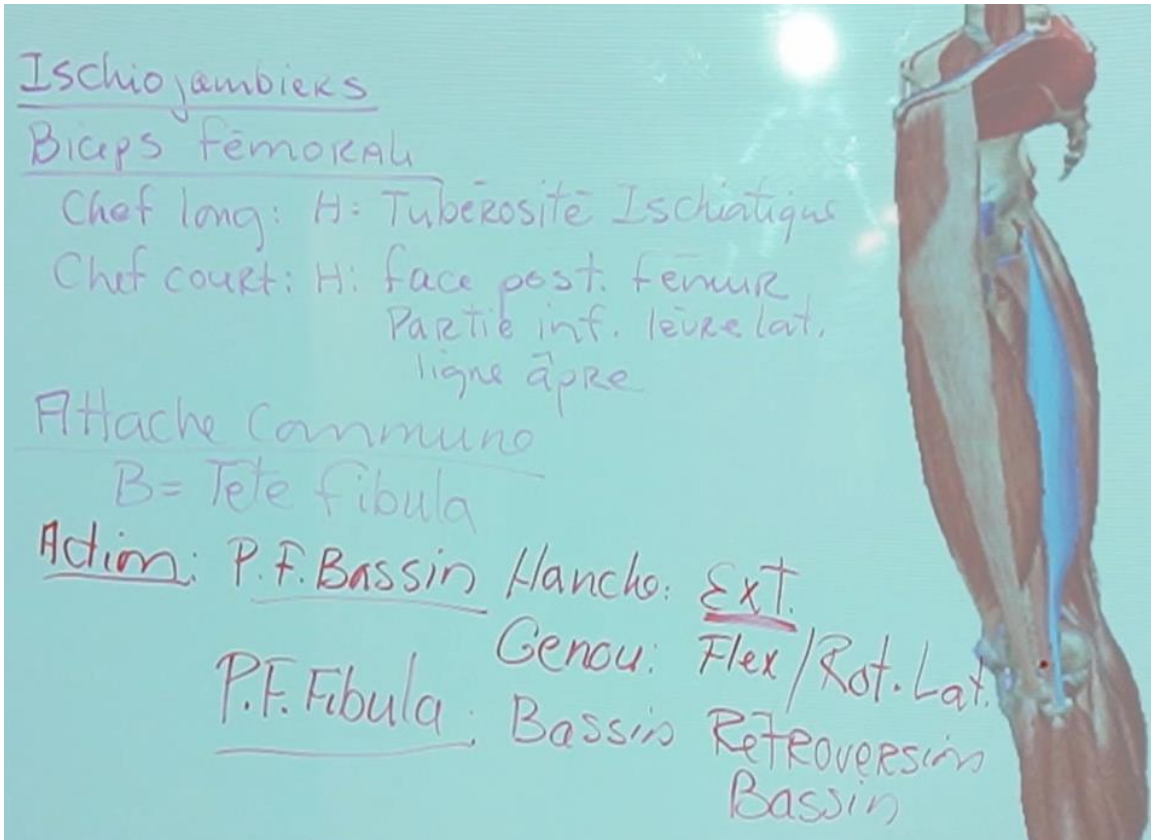 Ischiojambiers
Biceps Fémoral
Chef long: H: Tubérosité Ischiatique
Chef court: H: face post. fémur
Partie inf. lèvre lat.
ligne âpre
Attache Commune
B= Tête fibula
Action: P.F. Bassin Hanche: Ext.
Genou: Flex/Rot. Lat.
P.F. Fibula: Bassin Rétroversion
Bassin